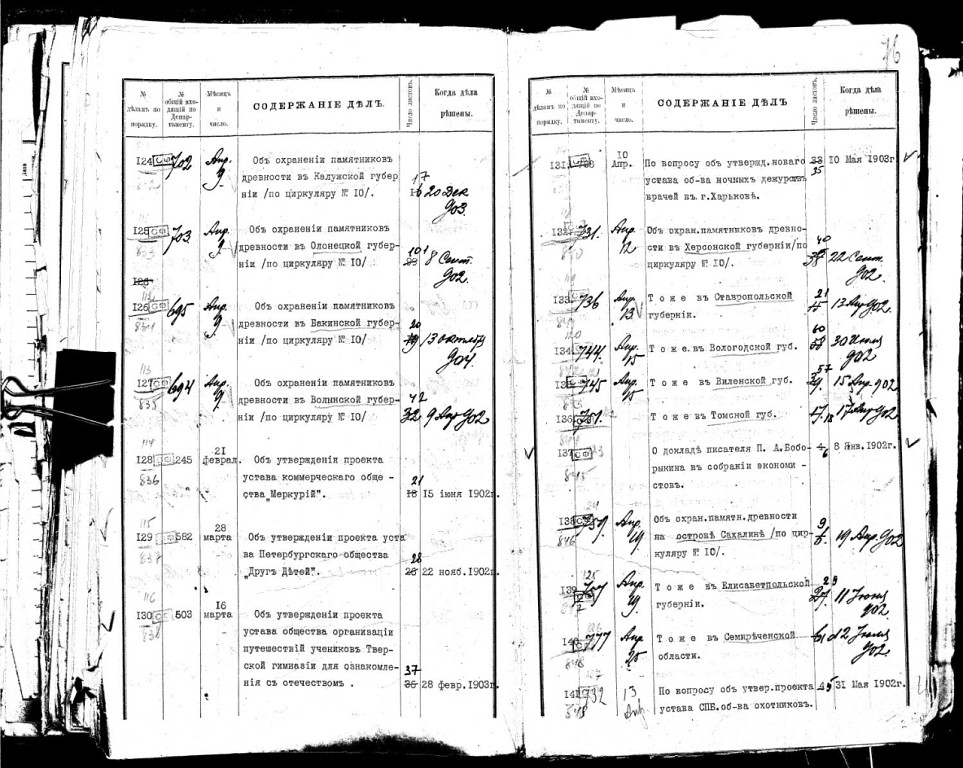 76
№
дѣламъ по
порядку.
№
общій вхо-
дящій по
Депар-
таменту.
Мѣсяцъ
и
число.
СОДЕРЖАНІЕ ДѢЛЪ.
Число листовъ.
Когда дѣла
рѣшены.
124 702 Апр. 9
Объ охраненіи памятниковъ
древности въ Калужской губер
ніи /по циркуляру № 10/.
17
20 Дек
903.
125 703. Апр. 9
Объ охраненіи памятниковъ
древности въ Олонецкой губер-
ніи /по циркуляру № 10/.
101
8 Сент.
902.
126 695 Апр. 9
Объ охраненіи памятниковъ
древности въ Бакинской губер-
ніи /по циркуляру № 10/
20
13 октября
904.
127 694 Апр. 9
Объ охраненіи памятниковъ
древности въ Волынской губер-
ніи /по циркуляру № 10/
42
32 9 Апр 902
128 245
836
21
феврал.
Объ утвержденіи проекта
устава коммерческаго обще -
ства „Меркурій".
21
18 15 іюня 1902г.
129 582
837
28
марта
Объ утвержденіи проекта уста
ва Петербургскаго общества
„Другъ Дѣтей".
28
26 22 нояб. 1902г.
130 503
838
16
марта
Объ утвержденіи проекта
устава общества организаціи
путешествій учениковъ Твер-
ской гимназіи для ознакомле-
нія съ отечествомъ .
37
36 28 февр. 1903г.
№
дѣламъ по
порядку.
№
общій вхо-
дящій по
Депар-
таменту.
Мѣсяцъ
и
число.
СОДЕРЖАНІЕ ДѢЛЪ
Число листовъ.
Когда дѣла
рѣшены.
131
10
Апр.
По вопросу объ утвержд.новаго
устава об-ва ночныхъ дежурствъ
врачей въ г.Харьковѣ.
33
35
10 Мая 1903г
132 731. Апр. 12
Объ охран.памятниковъ древно-
сти въ Херсонской губерніи/по
циркуляру № 10/.
40
22 Сент
902.
133 736 Апр. 13
Т о ж е въ Ставропольской
губерніи.
21
13 Апр 902.
134 744. Апр. 15
Т о ж е. въ Вологодской губ.
60
58
30 Июля
902
135 745 Апр. 15
Т о ж е въ Виленской губ.
57
15 Апр. 902
136 751.
Т о ж е въ Томской губ.
137
О докладѣ писателя П. А.Бобо-
рыкина въ собраніи экономи -
стовъ.
6
8 Янв. 1902г.
138 757. Апр. 19
846
Объ охран.памятн.древности
на островѣ Сахалинѣ /по цир-
куляру № 10/.
9
19 Апр. 902
139 Апр. 19
Т о ж е въ Елисаветпольской
губерніи.
29
27. 11 Июня
902.
140 777 Апр 25
848
Т о ж е въ Семирѣченской
области.
2 Июля
902.
141 732 13
По вопросу объ утвер.проекта
устава СПБ.об-ва охотниковъ.
31 Мая 1902г.